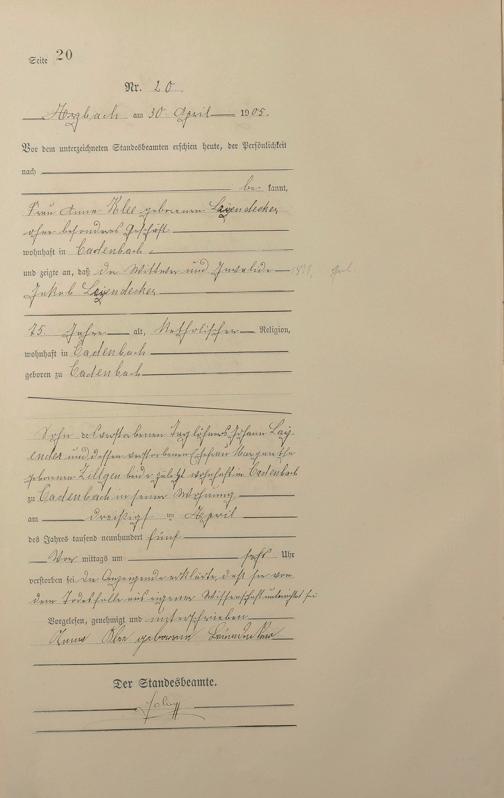 Seite 20
Nr. 20.
Arzbach am 30 April 1905.
Vor dem unterzeichneten Standesbeamten erschien heute, der Persönlichkeit
nach
be kannt,
Frau Anna Klee geborenen Leyendecker
ohne besonderes Geschäft
wohnhaft in Cadenbach
und zeigte an, daß der Wittwer und Invalide
Jakob Leyendecker
75 Jahre alt, katholischer Religion,
wohnhaft in Cadenbach
geboren zu Cadenbach
Sohn des verstorbenen Taglöhners Johann Ley-
ender und dessen verstorbenen Ehefrau Margarethe
geborenen Zillgen beide zuletzt wohnhaft in Cadenbach
zu Cadenbach in seiner Wohnung
am dreißigsten April
des Jahres tausend neunhundert fünf
Vor mittags um sechs Uhr
verstorben sei. Die Anzeigende erklärte, daß sie von
dem Todesfalle aus eigener Wissenschaft unterrichtet sei
Vorgelesen, genehmigt und unterschrieben
Anna Klee geborene
Der Standesbeamte.